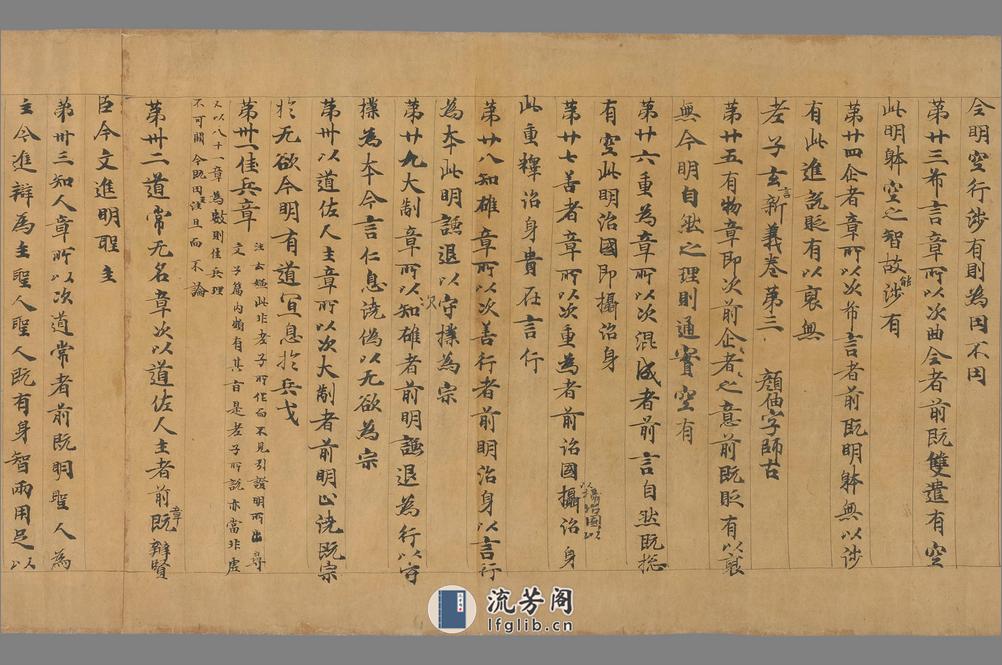 令明空行涉有則為因不因
第廿三希言章所以次曲全者前既雙遣有空
此明躰空之智故能涉有
第廿四企者章所以次希言者前既明躰無以涉
有此進說貶有以襃無
老子玄言新義卷第三　顏佃字師古
第廿五有物章即次前企者之意前既貶有以襃
無今明自然之理則通賓空有
第廿六重為章所以次混成者前言自然既揔
有空此明治國即攝治身
第廿七善者章所以次重為者前治國攝治身
此重釋治身貴在言行
第廿八知雄章所以次善行者前明治身以言行
為本此明謙退以守撲為宗
第廿九大制章所以次知雄者前明謙退為行以守
撲為本今言仁息澆偽以无欲為宗
第卅以道佐人主章所以次大制者前明止澆既宗
於无欲今明有道冝息於兵戈
第卅一佳兵章
注云嫌此非老子所作曰不見引證明所出尋
文子篇內頻有其旨是老子所說亦當非虛
又以八十一章為數則佳兵理
不可闕今既因注且而不論
第卅二道常无名章次以道佐人主者前章既辯賢
臣今文進明聖主
第卅三知人章所以次道常者前既明聖人為
主今進辯為主聖人聖人既有身智兩用足以
流芳阁
lfglib.cn